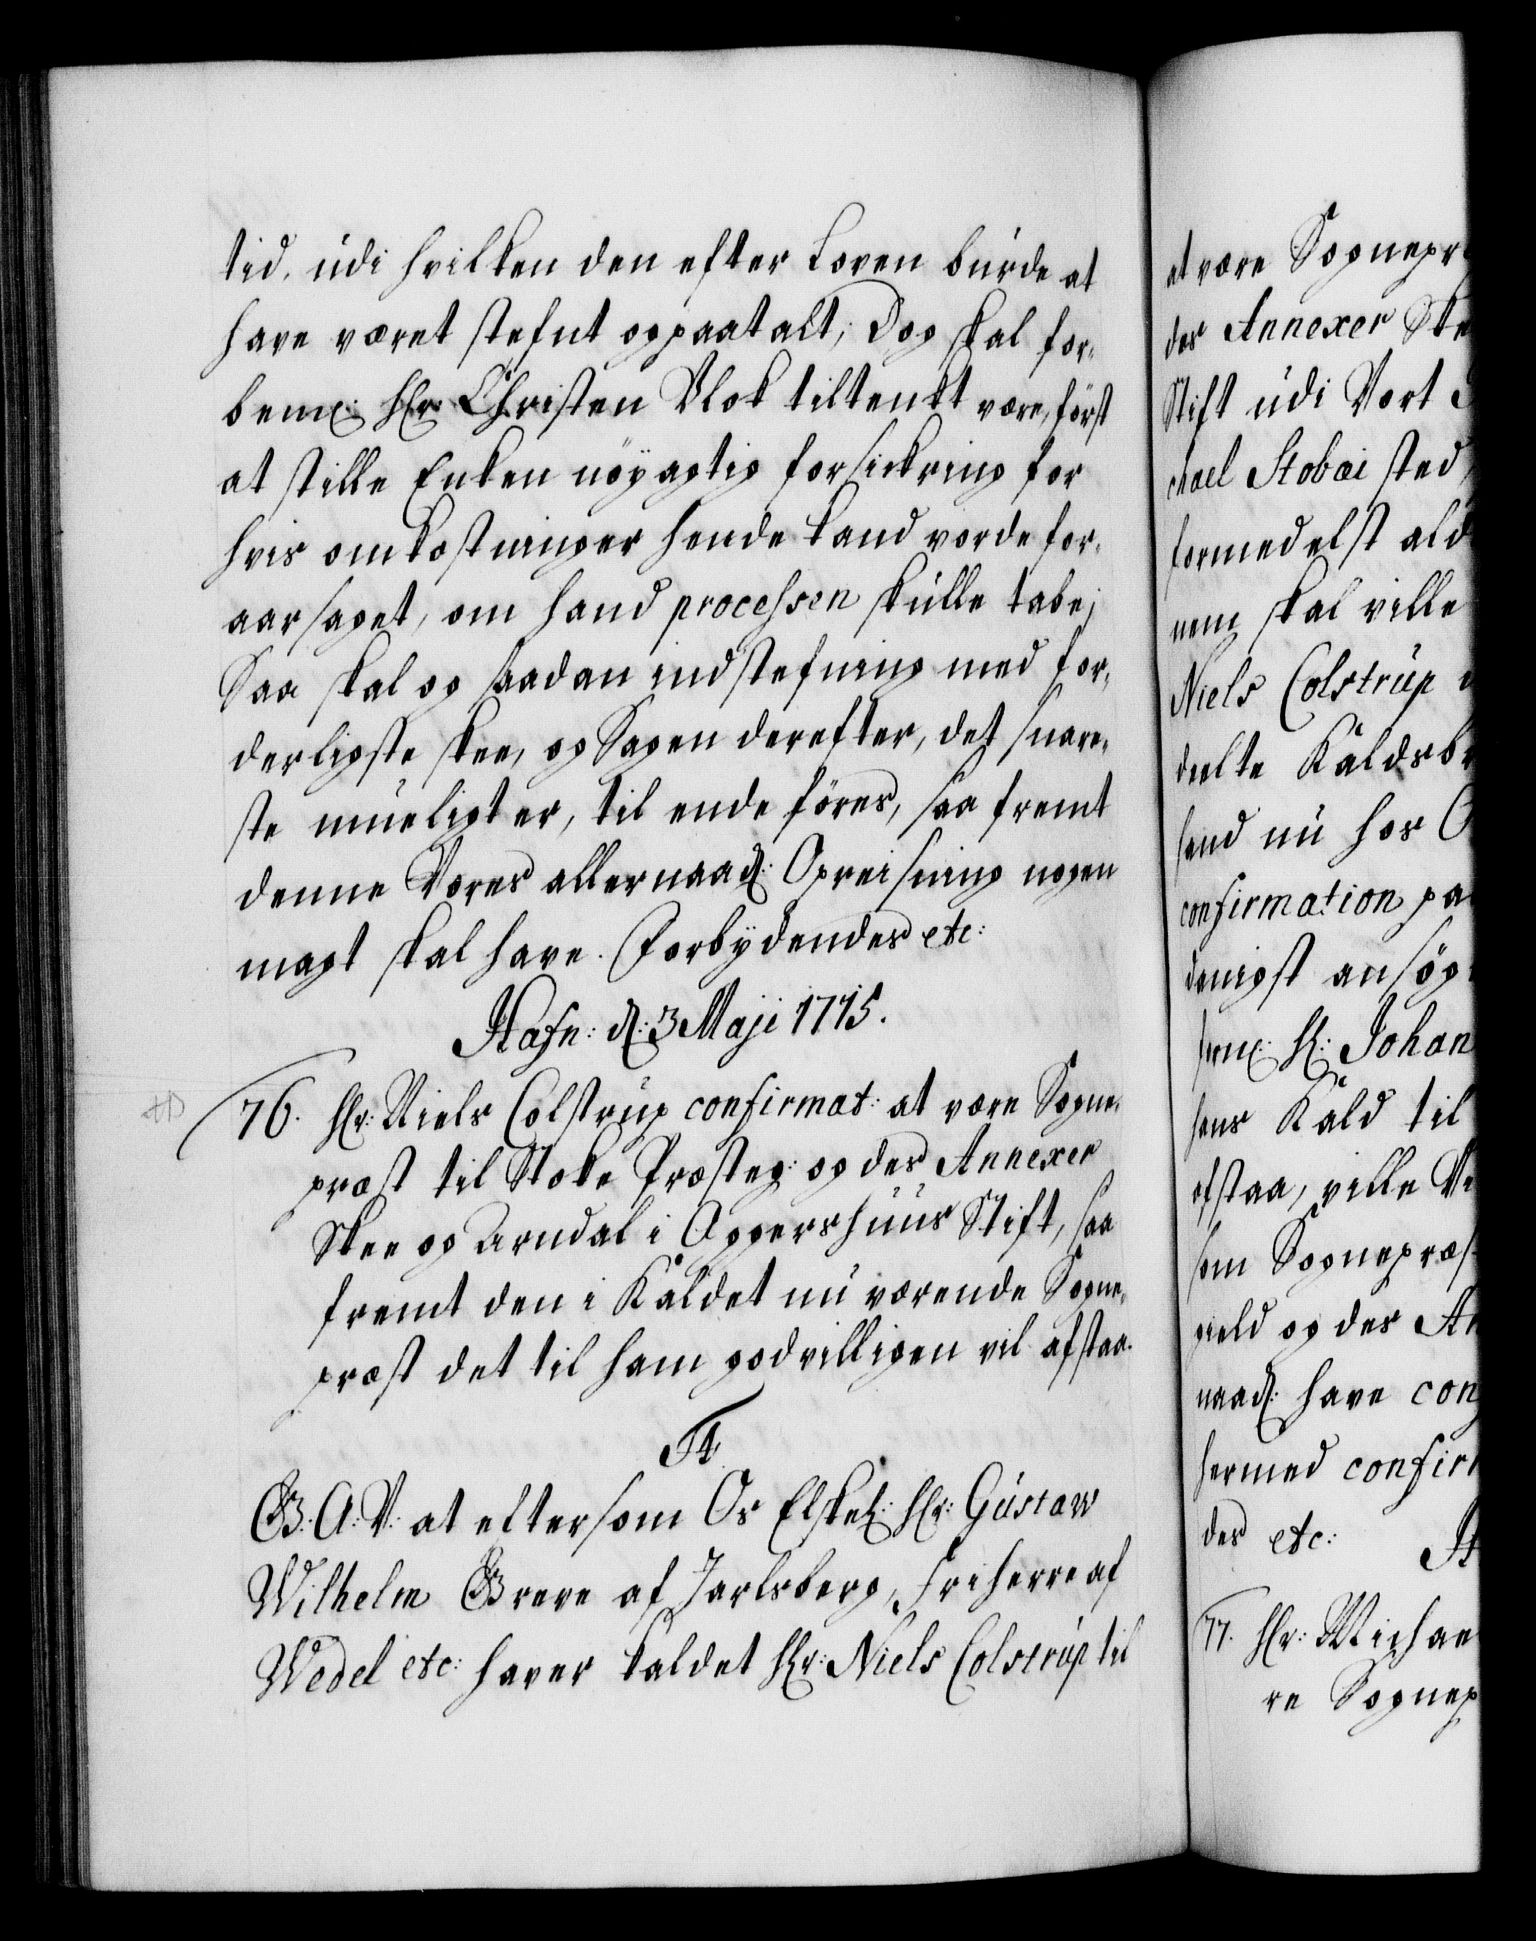 tid, udi hvilken den efter Loven burde at
have været stefnt og paatalt, Dog skal for-
bemt: Hr: Christen Vlok tiltenkt være, först
at stille Enken nöyagtig forsickring for
hvis omkostninger hende kand vorde for-
aarsaget, om hand processen skulle tabe;
Saa skal og saadan indstefning med for-
derligste skee, og Sagen derefter, det snare-
ste mueligt er, til ende föres, saa fremt
denne Vores allernaad: Opreisning nogen
magt skal have. Forbydendes etc:
Hafn: d: 3 Maji 1715.
76. Hr: Niels Colstrup confirmat: at være Sogne-
præst til Stoke Præsteg: og des Annexer
Skee og Arndal i Aggershuus Stift, saa
fremt den i Kaldet nu værende Sogne-
præst det til ham godvilligen vil afstaa.
F4.
G. A. V: at eftersom Os Elskel: Hr: Gustaw
Wilhelm Greve af Jarlsberg, Friherre af
Wedel etc: haver kaldet Hr: Niels Colstrup til
at være Sognepr
des Annexer Ske
Stift udi Vort
chael Stobæi sted
formedelst ald
nem skal ville
Niels Colstrup
deelte Kaldsbr
hand nu hos O
confirmation paa
danigst ansög
bemt: H: Johan
hans Kald til
afstaa, ville Vi
som Sognepræs
gield og des An
naad: have con
hermed confir
des etc:
77. Hr: Michae
re Sognep